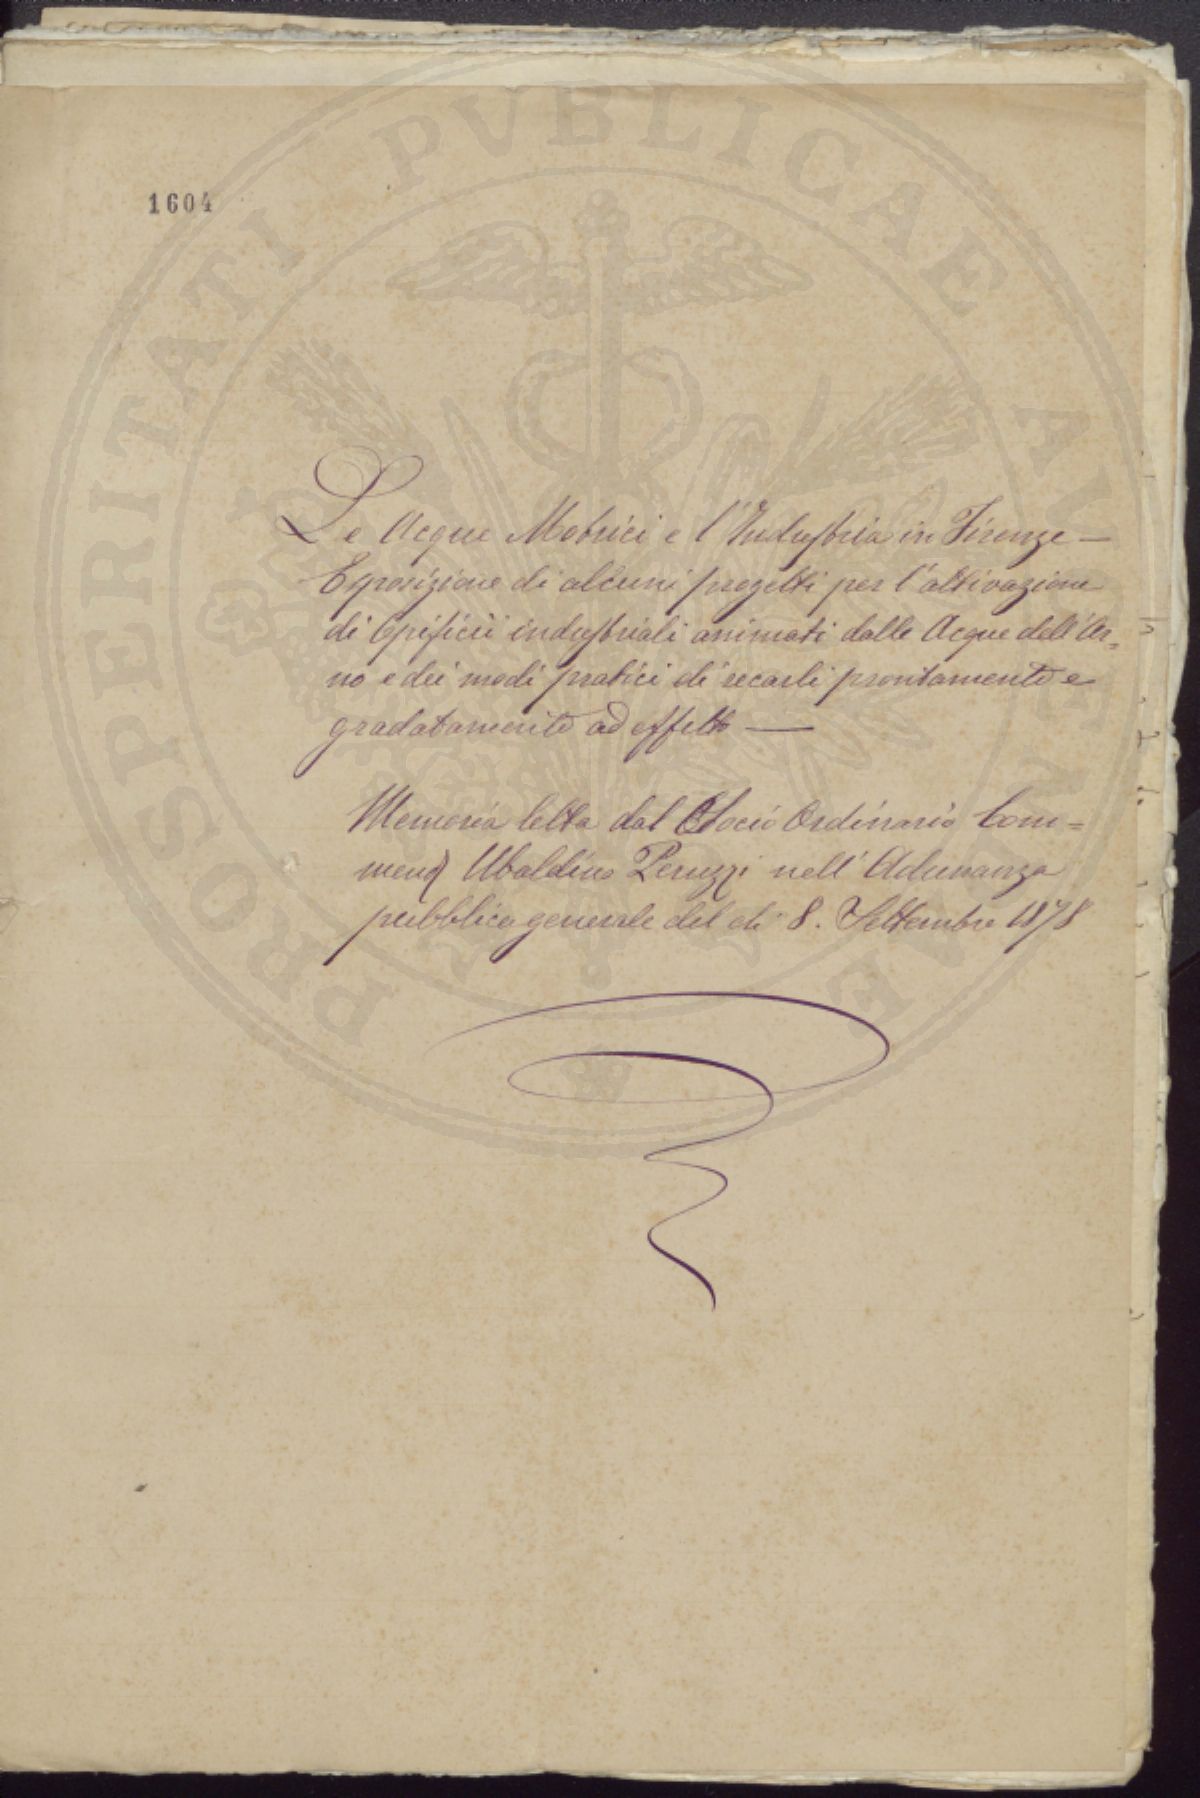 PROSPERITATI PVBLICAE AVGENDAE
1604
Le Acque Motrici e l'Industria in Firenze —
Esposizione di alcuni progetti per l'attivazione
di Opificii industriali animati dalle Acque dell'Ar=
no e dei modi pratici di recarli prontamente e
gradatamente ad effetto —
Memoria letta dal Socio Ordinario Com=
mend Ubaldino Peruzzi nell'Adunanza
pubblica generale del dì 8. Settembre 1878